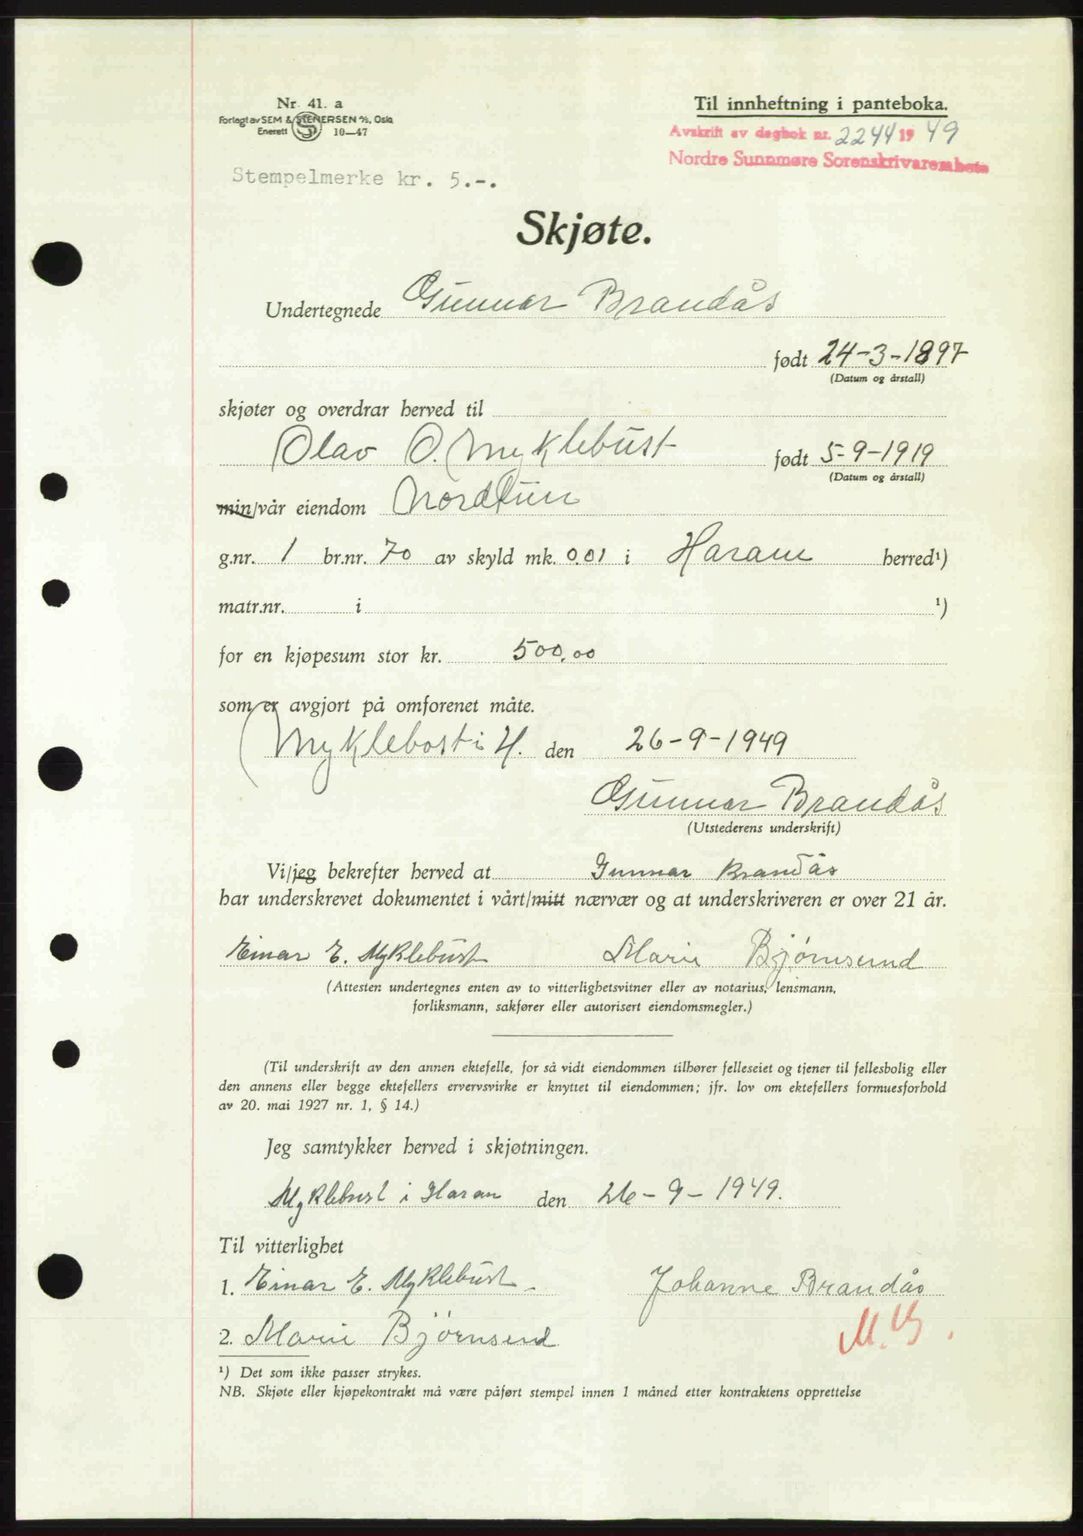 Nr. 41. a
Forlagt av SEM & STENERSEN A/S, Oslo
Enerett S 10—47
Til innheftning i panteboka.
Avskrift av dagbok nr. 2244 19 49
Nordre Sunnmøre Sorenskrivarembete
Stempelmerke kr. 5.-.
Skjøte.
Undertegnede Gunnar Brandås
født 24-3-1897
(Datum og årstall)
skjøter og overdrar herved til
Olav O. Myklebust født 5-9-1919
(Datum og årstall)
min/vår eiendom Nordtun
g.nr. 1 br.nr. 70 av skyld mk. 0.01 i Haram herred¹)
matr.nr. i ¹)
for en kjøpesum stor kr. 500,00
som er avgjort på omforenet måte.
Myklebost i H. den 26-9-1949
Gunnar Brandås
(Utstederens underskrift)
Vi/jeg bekrefter herved at Gunnar Brandås
har underskrevet dokumentet i vårt/mitt nærvær og at underskriveren er over 21 år.
Einar E. Myklebust Marie Bjørnsund
(Attesten undertegnes enten av to vitterlighetsvitner eller av notarius, lensmann,
forliksmann, sakfører eller autorisert eiendomsmegler.)
(Til underskrift av den annen ektefelle, for så vidt eiendommen tilhører felleseiet og tjener til fellesbolig eller
den annens eller begge ektefellers ervervsvirke er knyttet til eiendommen; jfr. lov om ektefellers formuesforhold
av 20. mai 1927 nr. 1, § 14.)
Jeg samtykker herved i skjøtningen.
Myklebust i Haram den 26-9-1949.
Til vitterlighet
1. Einar E. Myklebust - Johanne Brandås
2. Marie Bjørnsund
¹) Det som ikke passer strykes.
NB. Skjøte eller kjøpekontrakt må være påført stempel innen 1 måned etter kontraktens opprettelse